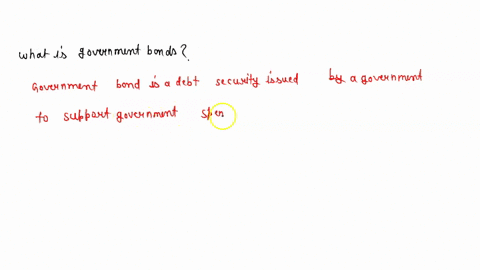 what is government bonds?
Government bond is a debt security issued by a government
to support government spen